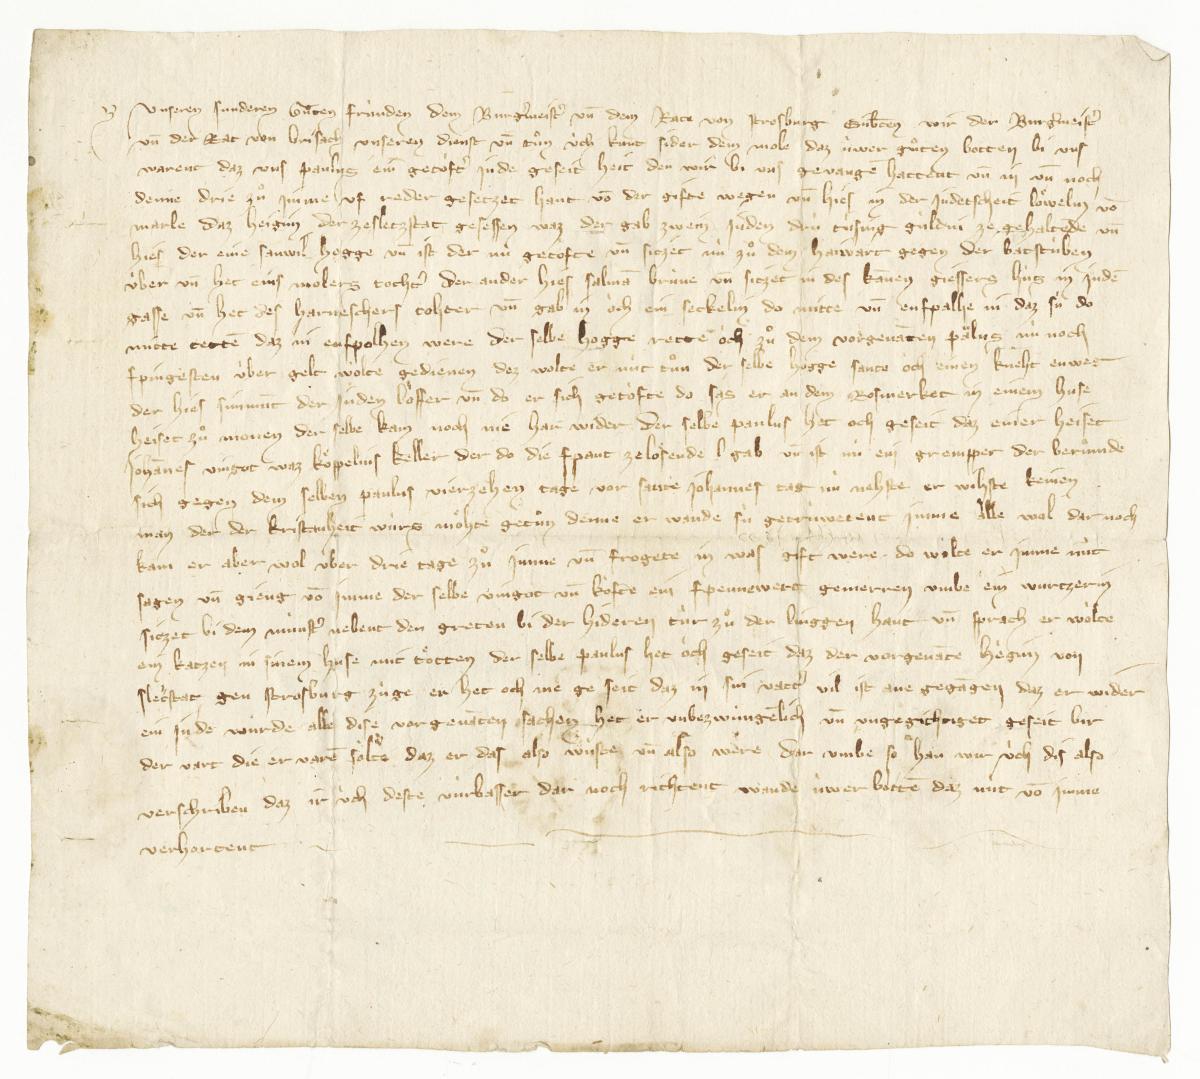 Unseren sunderen Guͦten frúnden dem Burg'meist' vn̄ dem Rate von strosburg Enbietē wir der Burg'meist'
vn̄ der Rat von brisach unseren dienst vn̄ tuͦn v́ch kunt sider dem mole daz úwer guͦten botten bi uns
warent daz uns paulus ein getoͤft' jude geseit heit den wir bi uns gevangē hattent vn̄ in vn̄ noch
denne drie zuͦ jmme uf reder gesetzet hant vō der gifte wegen vn̄ hies in der judescheit loͤwelin vō
marle daz heigin der ze sletzstat gesessen waz der gab zwein juden drú tusing guldin ze gehaltēde vn̄
hies der eine hegge vn̄ ist der nú getofte vn̄ sitzet nú zuͦ dem haiwart gegen der batstuben
v́ber vn̄ het eins molers tocht' der ander hies salmā brúne vn̄ sitzet in des kanen giessers hus in judē
gasse vn̄ het des harneschers tohter vn̄ gab in och ein seckelin do mitte vn̄ enfpalhe in daz sú do
mitte tettē daz in enfpolhen were der selbe hogge rette oͤch zuͦ dem vorgenātēn paͤlus nú noch
fpingesten v́ber gelt wolte gedienen dez wolte er nút tuͦn der selbe hogge sante och einen kneht enweg
der hies simmūt der juden loͤffer vn̄ do er sich getoͤfte do sas er an dem Rosmerket in einem huse
heiset zuͦ monen der selbe kam noch nie har wider der selbe paulus het och geseit daz einer heiset
johānes vingot waz koͤppelins keller der do die fpant ze loͤsende gab vn̄ ist nú ein grempper der beruͦmde
sich gegen dem selben paulus vierzehen tage vor sante johannes tag nú nehste er wihste keinen
man der der kristanheit wurs moͤhte getuͦn denne er wande sú getruwetent jmme alle wol dar noch
kam er aber wol v́ber drie tage zuͦ jmme vn̄ frogete in was gift were do wolte er jmme nút
sagen vn̄ gieng vō jmme der selbe vingot vn̄ koͤfte ein fpennewert gemerren umbe ein wurtzerin
sitzet bi dem múnst' nebent den greten bi der hideren túr zuͦ der linggen hant vn̄ sprach er woͤlte
ein katzen in sinem huse mit toͤtten der selbe paulus het oͤch geseit daz der vorgenāte hegin von
sletstat gen strosburg zúge er het och me ge seit daz in sin vatt' vil ist ane gegāgen daz er wider
ein jude wurde alle dise vorgenāten sachen het er unbezwungēlich vn̄ ungegichtiget geseit bir
der vart die er varē solte daz er das also wuste vn̄ also were dar umbe so han wir v́ch dis also
verschriben daz ir v́ch deste vúrbasser dar noch richtent wande úwer bottē daz nút vō jmme
verhortent